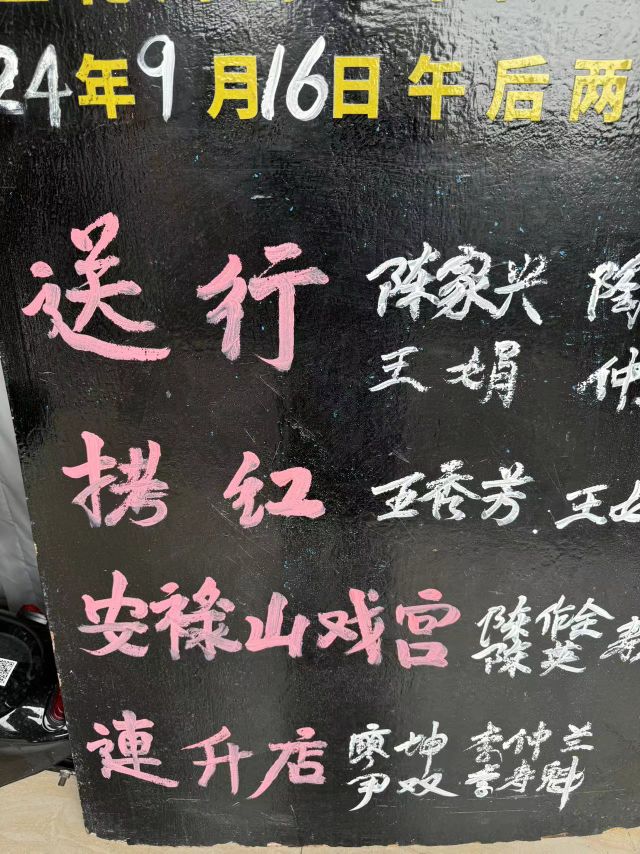 24年9月16日午后两
送行 陈家兴 陶
王娟 仲
拷红 王秀芳 王
安禄山戏宫 陈作全
陈英
連升店 廖坤 李仲兰
尹双 李寿魁